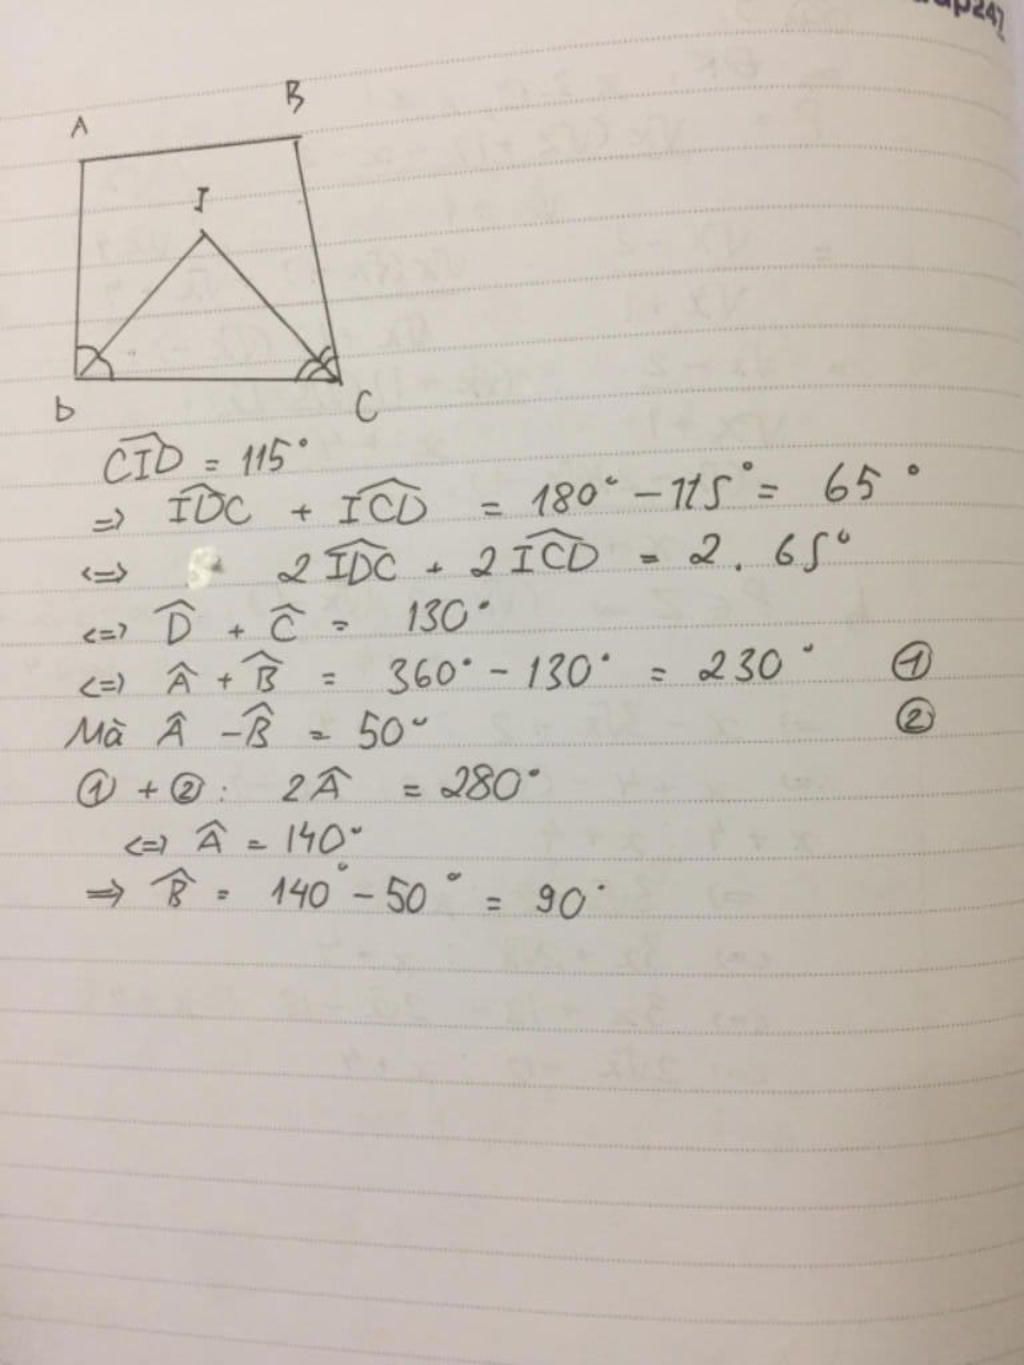 A B
I
D C
$\widehat{CID} = 115°$
$\Rightarrow \widehat{IDC} + \widehat{ICD} = 180° - 115° = 65°$
$\Leftrightarrow 2\widehat{IDC} + 2\widehat{ICD} = 2 . 65°$
$\Leftrightarrow \widehat{D} + \widehat{C} = 130°$
$\Leftrightarrow \widehat{A} + \widehat{B} = 360° - 130° = 230°$ ①
Mà $\widehat{A} - \widehat{B} = 50°$ ②
① + ② : $2\widehat{A} = 280°$
$\Leftrightarrow \widehat{A} = 140°$
$\Rightarrow \widehat{B} = 140° - 50° = 90°$